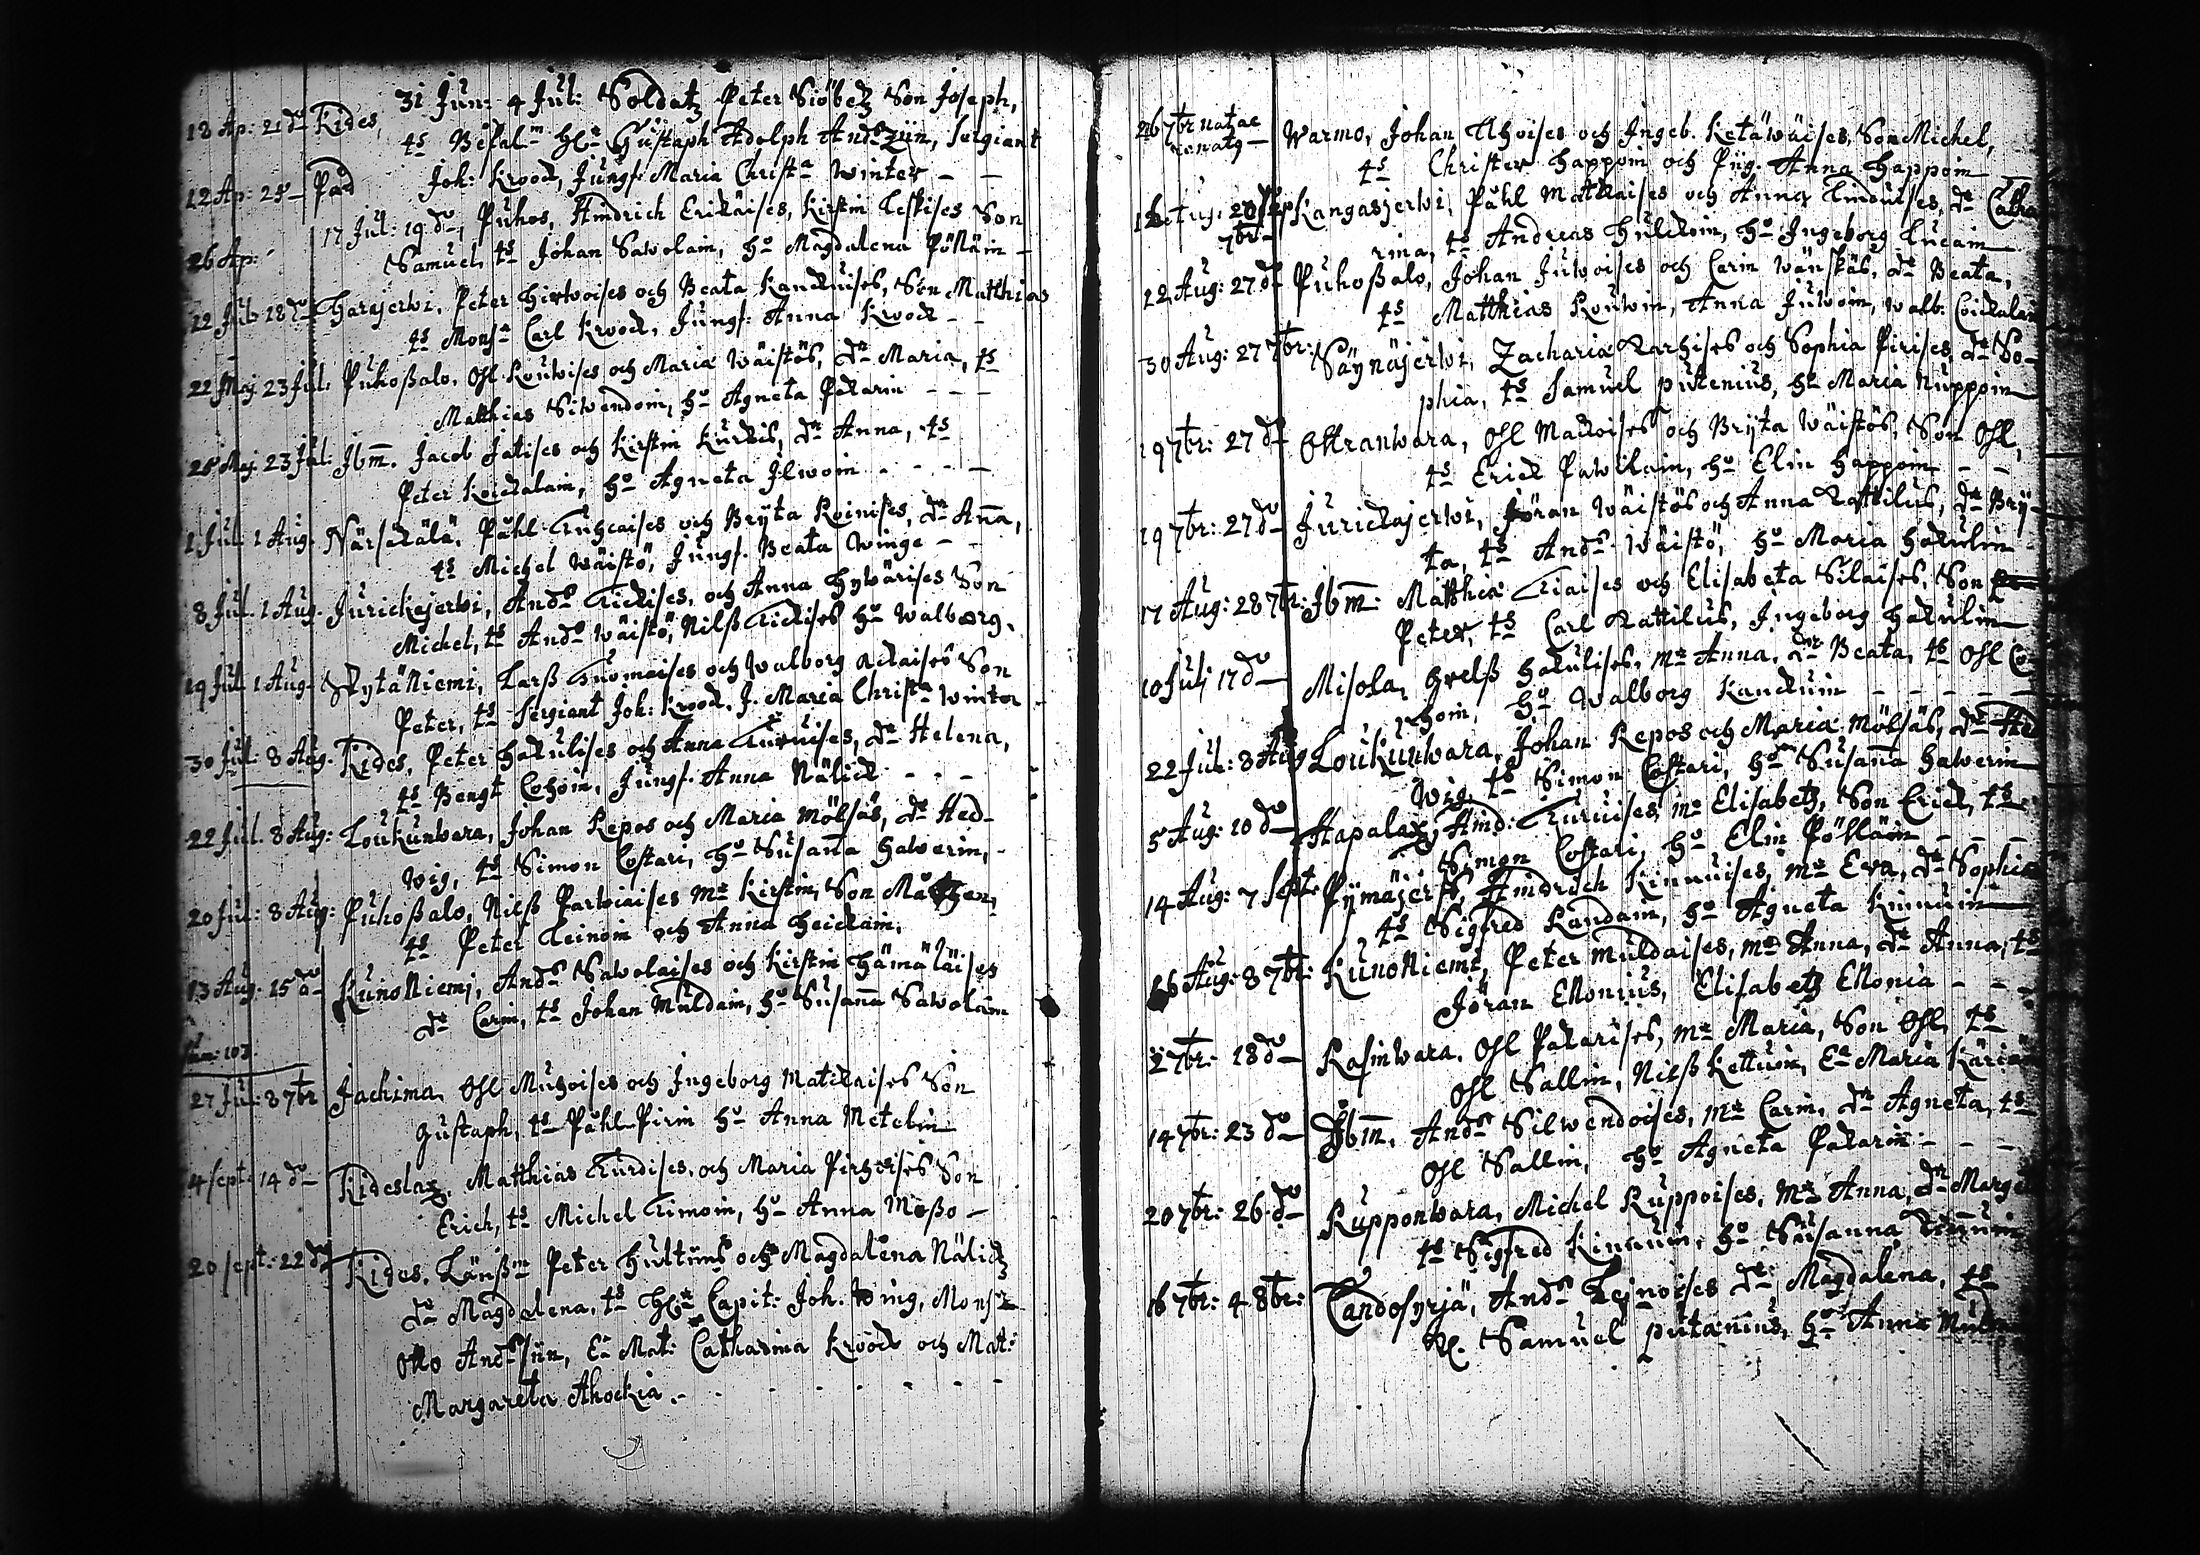 31 Jun: 4 Jul: Soldatz Peter Siöbetz Son Joseph,
18 Ap: 21 do Kides,
ts Befal:m Hr Gustaph Adolph Andszün, Sergiant
12 Ap: 25 — Pad Joh: Krook, Jungf: Maria Christa Winter — —
17 Jul: 19 do, Puhos, Hindrich Erikäises, Kirstin Leskises Son
26 Ap: Samuel, ts Johan Sawolain, ho Magdalena Pölläin —
12 Jul: 18 do Harajerwi, Peter Hirwoises och Beata Kanckuises, Son Matthias
ts Monsr Carl Krook, Jungf: Anna Krook — —
22 Maj 23 Jul: Puhoßalo, Ohl Rouwises och Maria Wäistös, dr Maria, ts
Matthias Siwendoin, ho Agneta Pakarin — — —
28 Maj 23 Jul: Ibm. Jacob Jatises och Kirstin Kurkis, dr Anna, ts
Peter Koickalain, ho Agneta Ilwoin — — — —
1 Jul 1 Aug. Närsäkälä, Påhl Tuhcaises och Bryta Roinises, dr Anna,
ts Michel Wäistö, Jungf. Beata Winge — —
8 Jul. 1 Aug. Jurickajerwi, Ands Tickises, och Anna Hywärises Son
Michel, ts Ands Wäistö, Nilß Tickises ho Walborg.
19 Jul 1 Aug. Rytäniemi, Larß Tuomaises och Walborg Ackaises Son
Peter, ts Sergiant Joh: Krook. J. Maria Christa Winter
30 Jul: 8 Aug. Kides, Peter Hakulises och Anna Turuises, dr Helena,
ts Bengt Cohoin, Jungf. Anna Nälick — — —
22 Jul. 8 Aug: Loukunwara, Johan Repos och Maria Mölsäs, dr Hed-
wig, ts Simon Costari, ho Susanna Halwerin, —
20 Jul: 8 Aug: Puhoßalo, Nilß Parwiaises mr Kirstin, Son
ts Peter Leinoin och Anna Heickain.
13 Aug: 15 do Kunoniemj, Ands Sawolaises och Kirstin Hämäläises
dr Carin, ts Johan Muldain, ho Susanna Sawolain
Sum: 107.
27 Jul: 8 7br Jachima, Ohl Muhoises och Ingeborg Matikaises Son
Gustaph, ts Påhl Pirin ho Anna Metelin
4 Sept: 14 do — Kideslax, Matthias Turdises, och Maria Pirhoises Son
Erich, ts Michel Timoin, ho Anna Moßo —
20 sept: 22 do Kides. Länßm Peter Hultuns och Magdalena Nälick
dr Magdalena, ts Hr Capit: Joh. Wing, Monsr
Otto Andssün, Er Mat: Catharina Krook och Mat:
Margareta Ahockia. — — — — — —
26 7br natae renatq — Warmo, Johan Uhoises och Ingeb. Ketäwäises, Son Michel,
ts Christer Happoin och Pig. Anna Happoin
12 Aug: 20 7br — Kangasjerwi, Påhl Matikaises och Anna Tinduises, dr Catha
rina, ts Andreas Hulckoin, ho Ingeborg Lucain
12 Aug: 27 do Puhoßalo, Johan Juwoises och Carin Wänskäs, dr Beata,
ts Matthias Rouwin, Anna Juwoin, Walb: Coickalain
30 Aug: 27 7br: Säynäjerwi, Zacharia Karhises och Sophia Pirises, dr So-
phia, ts Samuel Putenius, ho Maria Nuppoin
19 7br: 27 do Ottranwara, Ohl Makoises och Bryta Wäistös, Son Ohl,
ts Erick Pawilain, ho Elin Happoin — —
19 7br: 27 do Jurickajerwi, Jöran Wäistös och Anna Kattilus, dr Bry-
ta, ts Ands Wäistö, ho Maria Hakulin
17 Aug: 28 7br: Ibm: Matthia Tiaises och Elisabeta Silaises, Son
Peter, ts Carl Kattilus, Ingeborg Hakulin
10 Julj 17 do — Misola, Grelß Hakulises, mr Anna, dr Beata, ts Ohl Co-
hoin, ho Walborg Kanckuin — — — —
22 Jul: 8 Aug Loukunwara, Johan Repos och Maria Mölsäs, dr Hed
wig, ts Simon Costari, ho Susanna Halwerin
5 Aug: 10 do — Hapalax, Hind: Turuises mr Elisabetz, Son Erick, ts
Simon Costari, ho Elin Pölläin — — —
14 Aug: 7 Sept: Pymäjerfi, Hindrich Kinnuises, mr Eva, dr Sophia
ts Sigfred Randain, ho Agneta Kinnuin
26 Aug: 8 7br: Kunoniemi, Peter Muldaises, mr Anna, dr Anna, ts
Jöran Ellonius, Elisabetz Ellonia — — —
2 7br: 18 do — Rasinwara. Ohl Pakarises, mr Maria, Son Ohl, ts
Ohl Sallin, Nilß Kettuin, Er Maria Käriäin
14 7br: 23 do — Ibm, Ands Silwendoises, mr Carin, dr Agneta, ts
Ohl Sallin, ho Agneta Pakarin — — —
20 7br: 26 do Rupponwara, Michel Ruppoises, mr Anna, dr Marge
ts Sigfred Kinnuin, ho Susanna Kinnuin
16 7br: 4 8br: Tandosyrjä, Ands Lejnoises dr, Magdalena, ts
H. Samuel Putänius, ho Anna